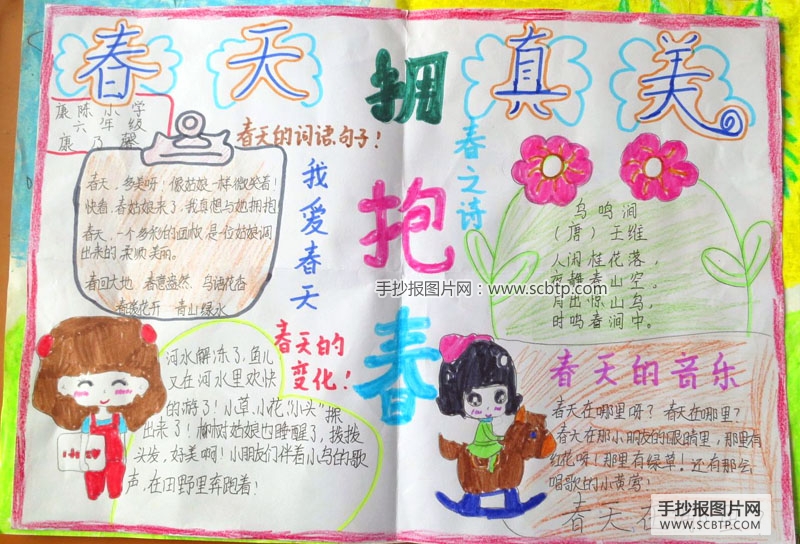 春天真美
拥抱春
康陈小学
六年级
康乃馨
春天的词语、句子!
春天,多美呀!像姑娘一样微笑着!
快看,春姑娘来了,我真想与她拥抱
春天,一个多彩的面板,是一位姑娘调
出来的,柔婉美丽。
春回大地 春意盎然 鸟语花香
春暖花开 青山绿水
我爱春天
春天的
变化!
河水解冻了,鱼儿
又在河水里欢快
的游了!小草、小花,“小头”探
出来了!柳树姑娘也睡醒了,拨拨
头发,好美啊!小朋友们伴着小鸟的歌
声,在田野里奔跑着!
春之诗
鸟鸣涧
(唐)王维
人闲桂花落,
夜静春山空。
月出惊山鸟,
时鸣春涧中。
春天的音乐
春天在哪里呀?春天在哪里?
春天在那小朋友的眼睛里,那里有
红花呀!那里有绿草!还有那会
唱歌的小黄莺!
春天在
手抄报图片网:www.scbtp.com
手抄报图片网
WWW.SCBTP.COM